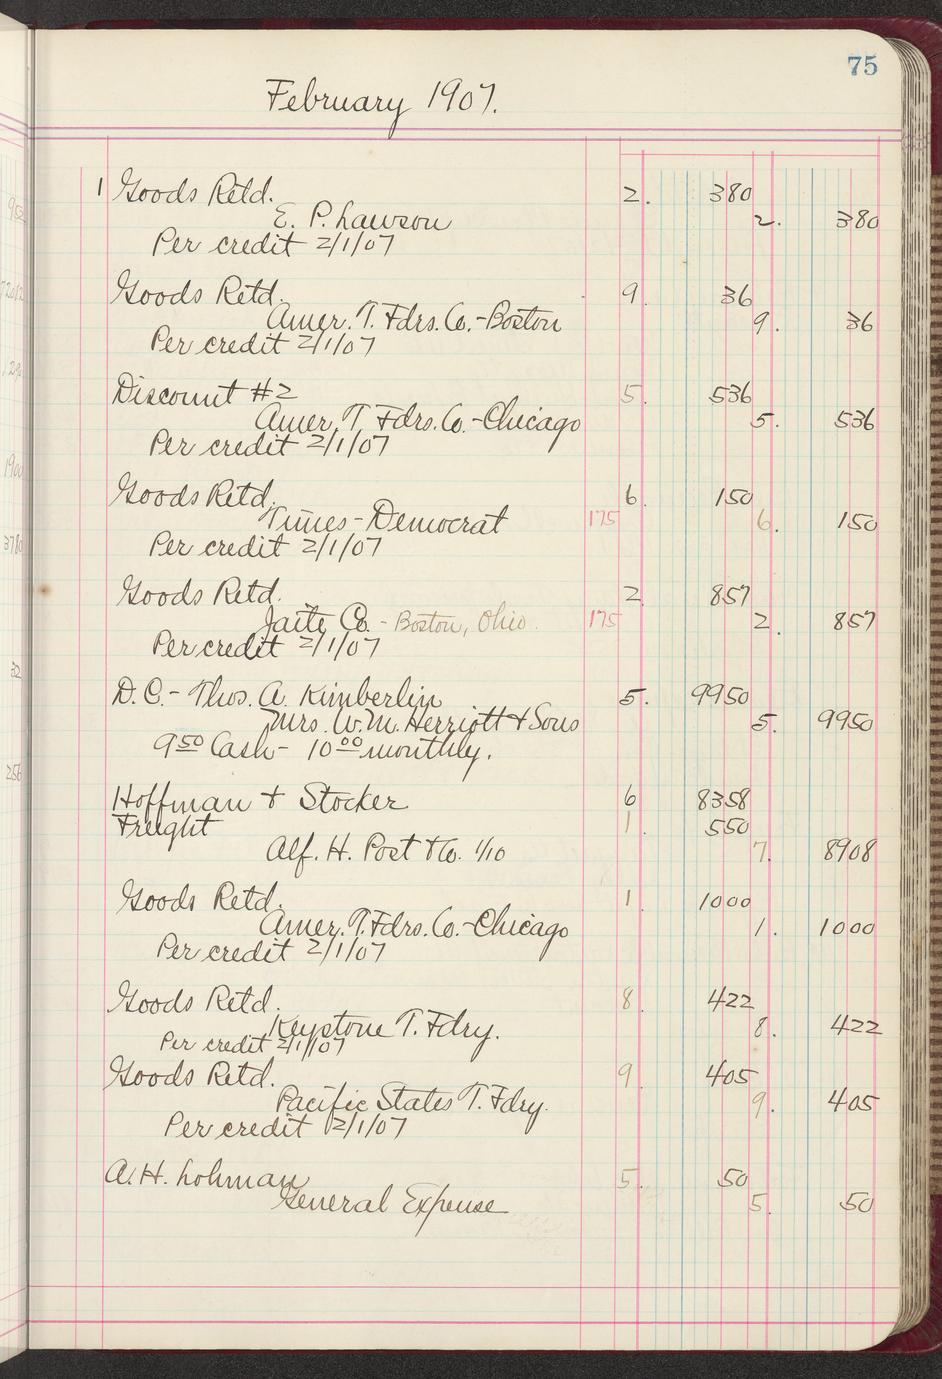 75
February 1907.
1 Goods Retd. 2. 380
E. P. Lawson 2. 380
Per credit 2/1/07
Goods Retd. 9. 36
Amer. T. Fdrs. Co.-Boston 9. 36
Per credit 2/1/07
Discount #2 5. 536
Amer. T. Fdrs. Co.-Chicago 5. 536
Per credit 2/1/07
Goods Retd. 6. 150
Times-Democrat 175 6. 150
Per credit 2/1/07
Goods Retd. 2. 857
Jaite Co. - Boston, Ohio. 175 2. 857
Per credit 2/1/07
D.C.- Thos. A. Kimberlin 5. 9950
Mrs. W. M. Herriott & Sons 5. 9950
9 50 Cash - 10 00 monthly.
Hoffman & Stocker 6 8358
Freight 1. 550
Alf. H. Post & Co. 1/10 7. 8908
Goods Retd. 1. 1000
Amer. T. Fdrs. Co.-Chicago 1. 1000
Per credit 2/1/07
Goods Retd. 8. 422
Keystone T. Fdry. 8. 422
Per credit 2/1/07
Goods Retd. 9. 405
Pacific States T. Fdry. 9. 405
Per credit 2/1/07
A. H. Lohman 5. 50
General Expense 5. 50